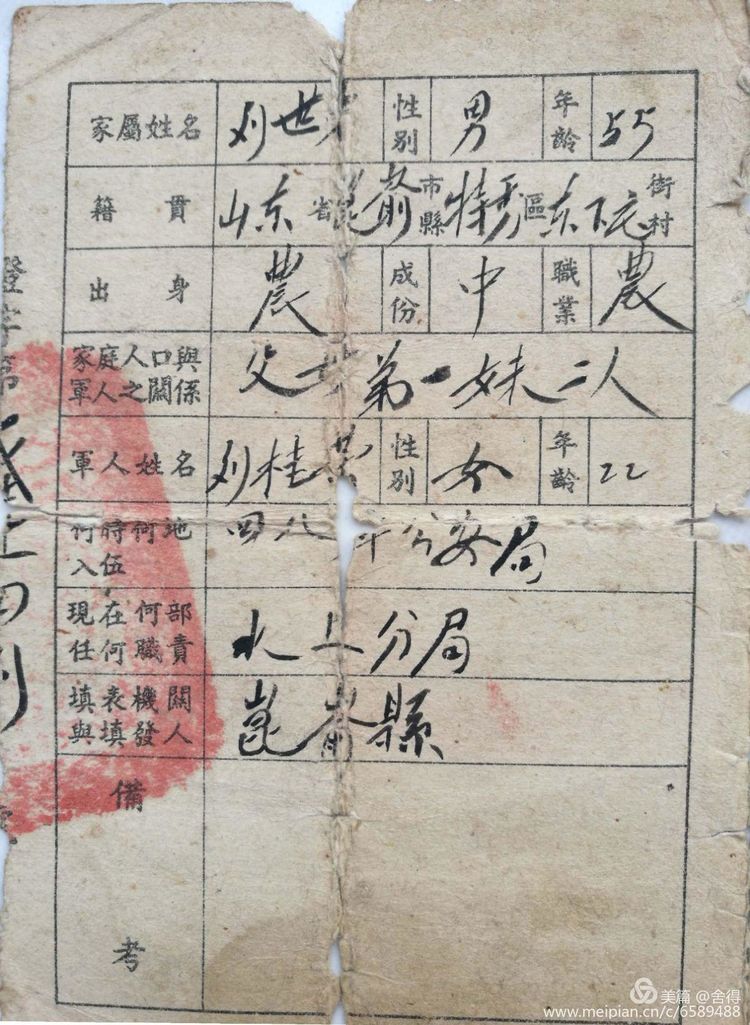 家屬姓名 刘世 性别 男 年齡 55
籍貫 山东省崑嵛市縣特秀區东下 街村
出身 農 成份 中 職業 農
家庭人口與軍人之關係 父 母 弟一 妹二人
軍人姓名 刘桂 性别 女 年齡 22
何時何地入伍 四八年公安局
現在何部任何職責 水上分局
填表機關與填發人 崑嵛縣
備考
證字第
美篇 @舍得
www.meipian.cn/c/6589488